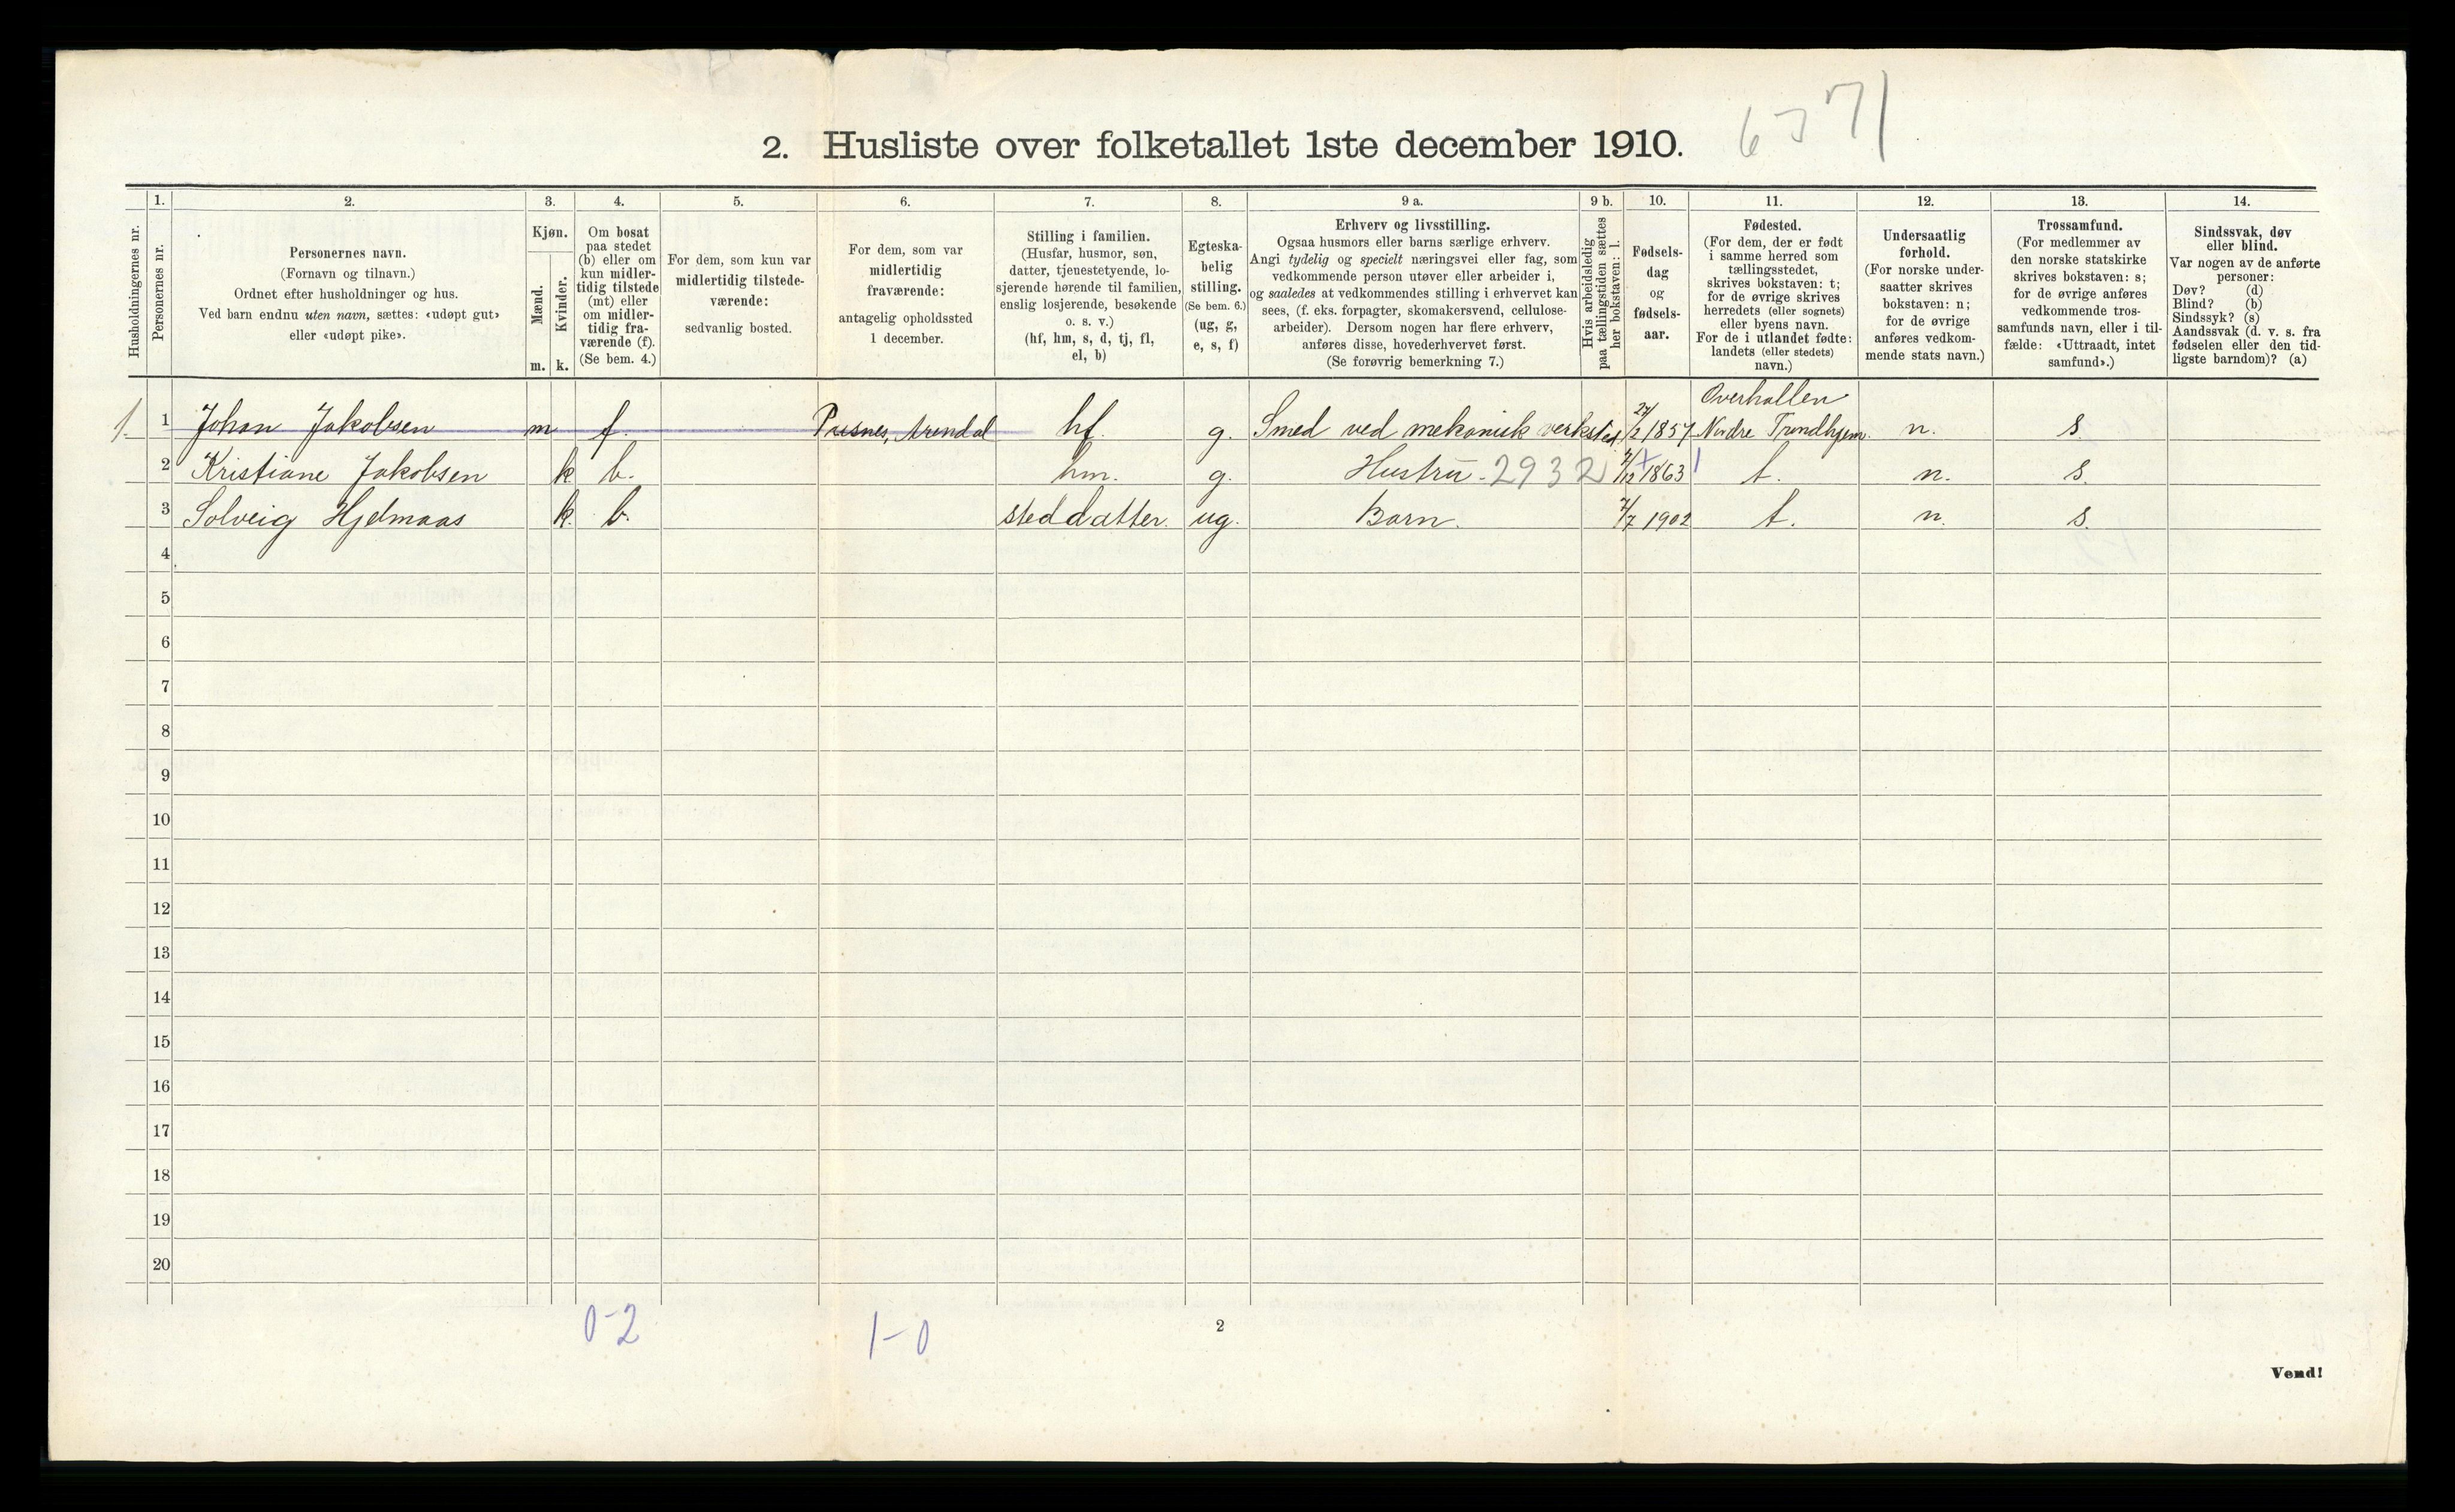 6371
2. Husliste over folketallet 1ste december 1910.
Husholdningernes nr.
1. Personernes nr.
2. Personernes navn.
(Fornavn og tilnavn.)
Ordnet efter husholdninger og hus.
Ved barn endnu uten navn, sættes: «udøpt gut»
eller «udøpt pike».
3. Kjøn.
Mænd. Kvinder.
m. k.
4. Om bosat
paa stedet
(b) eller om
kun midler-
tidig tilstede
(mt) eller
om midler-
tidig fra-
værende (f).
(Se bem. 4.)
5. For dem, som kun var
midlertidig tilstede-
værende:
sedvanlig bosted.
6. For dem, som var
midlertidig
fraværende:
antagelig opholdssted
1 december.
7. Stilling i familien.
(Husfar, husmor, søn,
datter, tjenestetyende, lo-
sjerende hørende til familien,
enslig losjerende, besøkende
o. s. v.)
(hf, hm, s, d, tj, fl,
el, b)
8. Egteska-
belig
stilling.
(Se bem. 6.)
(ug, g,
e, s, f)
9 a. Erhverv og livsstilling.
Ogsaa husmors eller barns særlige erhverv.
Angi tydelig og specielt næringsvei eller fag, som
vedkommende person utøver eller arbeider i,
og saaledes at vedkommendes stilling i erhvervet kan
sees, (f. eks. forpagter, skomakersvend, cellulose-
arbeider). Dersom nogen har flere erhverv,
anføres disse, hovederhvervet først.
(Se forøvrig bemerkning 7.)
9 b. Hvis arbeidsledig
paa tællingstiden sættes
her bokstaven: l.
10. Fødsels-
dag
og
fødsels-
aar.
11. Fødested.
(For dem, der er født
i samme herred som
tællingsstedet,
skrives bokstaven: t;
for de øvrige skrives
herredets (eller sognets)
eller byens navn.
For de i utlandet fødte:
landets (eller stedets)
navn.)
12. Undersaatlig
forhold.
(For norske under-
saatter skrives
bokstaven: n;
for de øvrige
anføres vedkom-
mende stats navn.)
13. Trossamfund.
(For medlemmer av
den norske statskirke
skrives bokstaven: s;
for de øvrige anføres
vedkommende tros-
samfunds navn, eller i til-
fælde: «Uttraadt, intet
samfund».)
14. Sindssvak, døv
eller blind.
Var nogen av de anførte
personer:
Døv? (d)
Blind? (b)
Sindssyk? (s)
Aandssvak (d. v. s. fra
fødselen eller den tid-
ligste barndom)? (a)
Overhallen
1. 1 Johan Jakobsen m f. Pusnes, Arendal hf. g. Smed ved mekanisk verksted 27/2 1857 Nordre Trondhjem. n. s.
2 Kristiane Jakobsen k b. hm. g. Hustru. 2932 7/12 1863 t. n. s.
3 Solveig Hjelmaas k. b. steddatter. ug. Barn. 7/7 1902 t. n. s.
4
5
6
7
8
9
10
11
12
13
14
15
16
17
18
19
20
0-2 1-0
2
Vend!